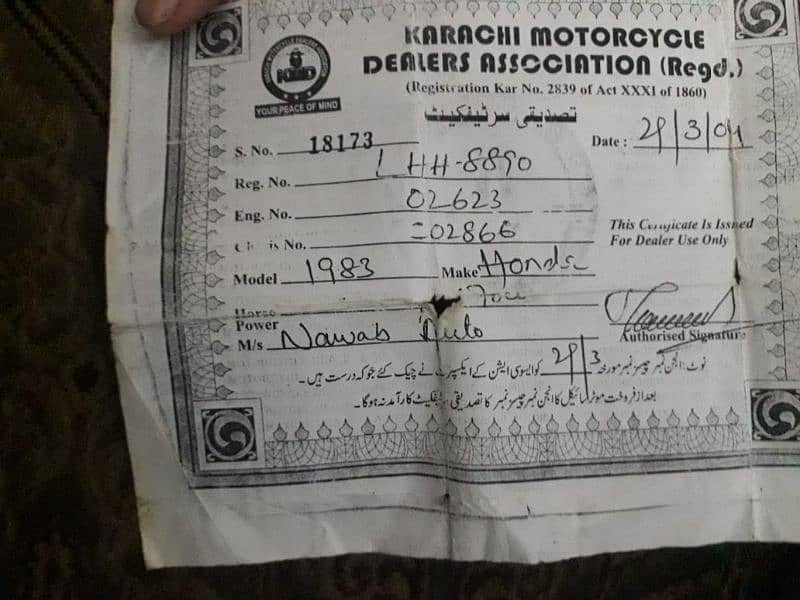 KARACHI MOTORCYCLE
DEALERS ASSOCIATION (Regd.)
(Registration Kar No. 2839 of Act XXXI of 1860)
YOUR PEACE OF MIND
تصدیقی سرٹیفکیٹ
S. No. 18173
Date : 29/3/04
Reg. No. LHH-8890
Eng. No. 02623
is No. 02866
This Certificate Is Issued
For Dealer Use Only
Model 1983 Make Honda
Horse
Power
M/s Nawab Auto
Authorised Signature
نوٹ: انجن نمبر چیسز نمبر مورخہ 29/3 کو ایسوسی ایشن کے ایکسپرٹ نے چیک کئے جو کہ درست ہیں۔
بعد از فروخت موٹر سائیکل کا انجن نمبر چیسز نمبر کا تصدیقی سرٹیفکیٹ کارآمد نہ ہوگا۔